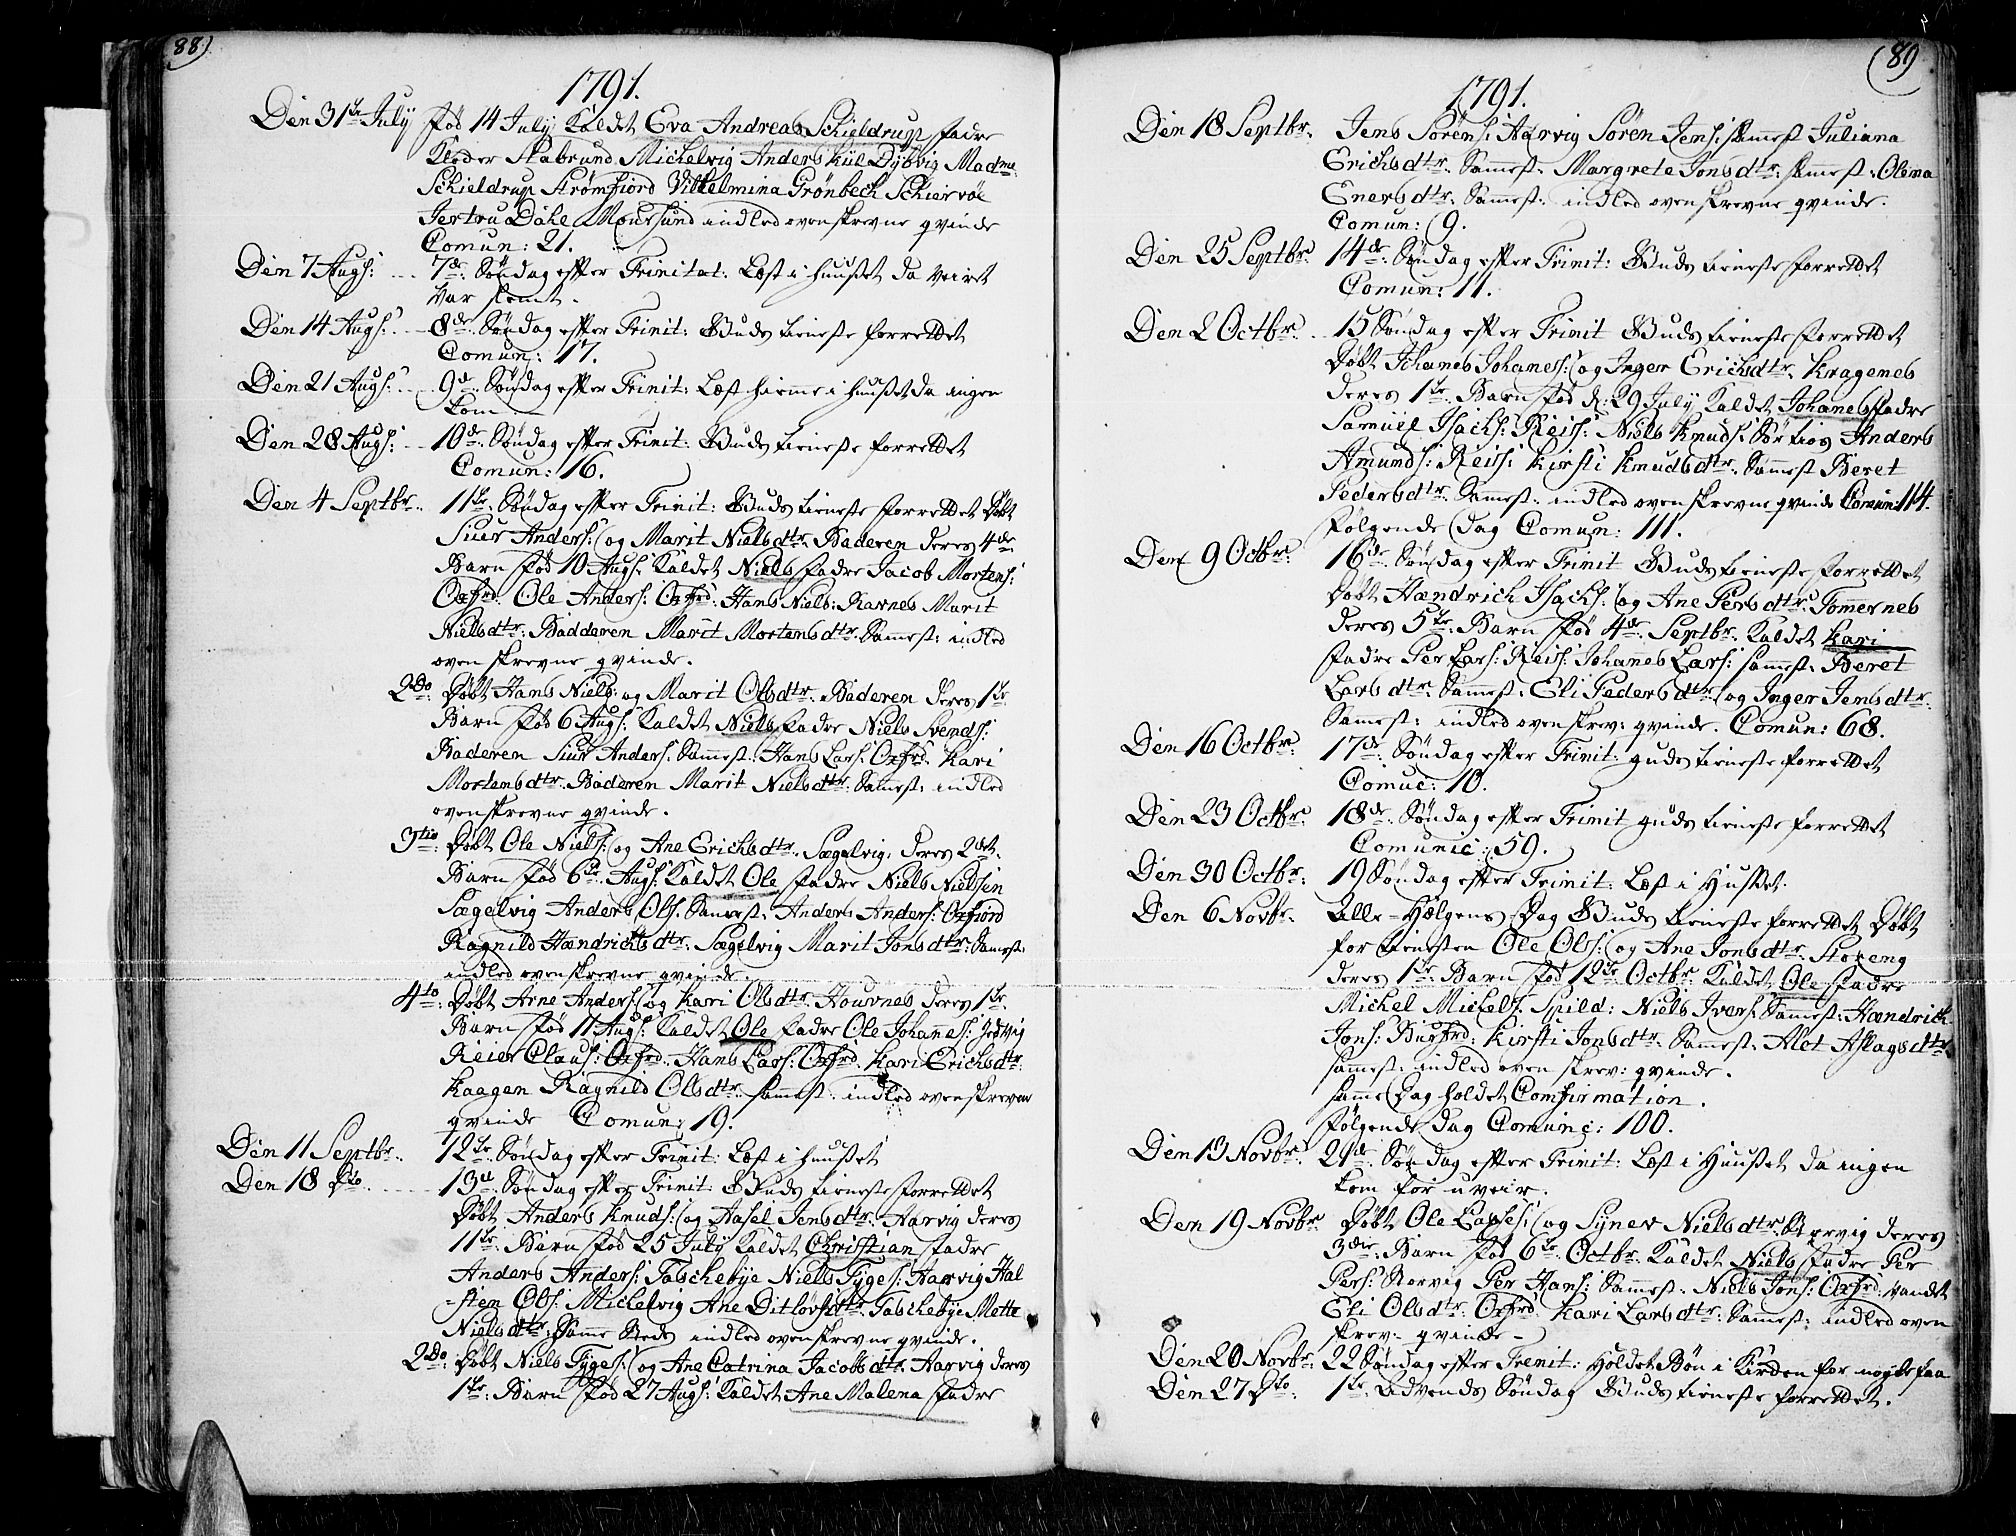 88)
1791.
Den 31te July fød 14 July kaldet Eva Andreas Schieldrup fadre
Klæder Skabrund Michelvig Anders Kiil Dybvig Madme
Schieldrup Strømfiord Vilhelmina Grønbech Schiervöe
Jertru Dahl Moursund indled ovenskrevne qvinde
Comun: 21.
Den 7 Augs: 7de Søndag efter Trinitat: Læst i huuset da veiret
var slemt.
Den 14 Augs: 8de Søndag efter Trinit: Guds tieneste forrettet
Comun: 17.
Den 21 Augs: 9de Søndag efter Trinit: Læst hieme i huuset da ingen
kom
Den 28 Augs: 10de Søndag efter Trinit: Guds tieneste forrettet
Comun: 16.
Den 4 Septbr. 11te Søndag efter Trinit: Guds tieneste forrettet Døbt
Siuer Anders: og Marit Nielsdtr. Baderen deres 4de
Barn fød 10 Augs: kaldet Niels fadre Jacob Mortens:
Oxfrd. Ole Anders: Oxfrd. Hans Niels: Ravnes Marit
Nielsdtr. Badderen Marit Mortensdtr. Samest: indled
oven skrevne qvinde.
2do: Døbt Hans Niels: og Marit Olsdtr. Baderen deres 1te
Barn fød 6 Augs: kaldet Niels fadre Niels Svends:
Baderen Siur Anders: Samest: Hans Lars: Oxfrd. Kari
Mortensdtr. Baderen Marit Nielsdtr. Samest: indled
ovenskrevne qvinde.
3tio: Døbt Ole Niels: og Ane Erichsdtr. Sægelvig, deres 2det
Barn fød 6te Augs: kaldet Ole fadre Niels Nielssen
Sægelvig Anders Ols. Samest: Anders Anders: Oxfiord
Ragnild Hændrichsdtr. Sægelvig Marit Jonsdtr: Samest:
indled ovenskrevne qvinde.
4to: Døbt Arne Anders: og Kari Olsdtr. Houvnes deres 1te
Barn fød 11 Augs: kaldet Ole fadre Ole Johanes: Jedtvig
Reier Claus: Oxfrd. Hans Lars: Oxfrd. Kari Erichsdtr:
Kaagen Ragnild Olsdtr. samest: indled ovenskreven
qvinde Comun: 19.
Den 11 Septbr. 12te Søndag efter Trinit: Læst i huuset
Den 18 Dto. 13de Søndag efter Trinit: Guds tieneste forrettet
Døbt Anders Knuds: og Aasel Jensdtr. Aarvig deres
11te Barn fød 25 July kaldet Christian fadre
Anders Anders: Taschebye Niels Tyges: Aarvig Hal
-sten Ols: Michelvig Ane Ditlövsdtr. Taschebye Mette
Nielsdtr. Same Steds indled ovenskrevne qvinde.
2do: Døbt Niels Tyges: og Ane Catrina Jacobsdtr. Aarvig deres
1te Barn fød 27 Augs: kaldet Ane Malena fadre
(89
1791.
Den 18 Septbr. Jens Sörens: Aarvig Sören Jens: samest Juliana
Erichsdtr. Samest: Margrete Jonsdtr: samest: Olena
Enersdtr: Samest: indled ovenskrevne qvinde.
Comun: 9.
Den 25 Septbr. 14de Søndag efter Trinit: Guds tieneste forrettet
Comun: 11.
Den 2 Octbr. 15 Søndag efter Trinit Guds tieneste forrettet
Døbt Johanes Johanes: og Inger Erichsdtr. Kragenes
deres 1te Barn fød d: 29 July kaldet Johanes fadre
Samuel Isachs: Reis: Niels Knuds: Sör fior Anders
Amunds: Reis: Kirsti Knudsdtr. Samest Beret
Pedersdtr. Samest: indled ovenskrevne qvinde Comun: 114.
følgende dag Comun: 111.
Den 9 Octbr. 16de Søndag efter Trinit Guds tieneste forrettet
Døbt Hændrich Isachs: og Ane Persdtr. Tømernes
deres 5te Barn fød 4de Septbr. kaldet Kari
fadre Per Lars: Reis: Johanes Lars: samest: Beret
Larsdtr. Samest: Eli Pedersdtr. og Inger Jensdtr.
Samest: indled ovenskrev: qvinde. Comun: 68.
Den 16 Octbr. 17de Søndag efter Trinit: guds tieneste forrettet
Comuc: 10.
Den 23 Octbr. 18de Søndag efter Trinit guds tieneste forrettet
Comunic: 59.
Den 30 Octbr. 19 Søndag efter Trinit: Læst i Huset.
Den 6 Novbr. Alle-Hælgens Dag Guds tieneste forrettet Døbt
for tienesten Ole Ols: og Ane Jonsdtr. Storeng
deres 1te Barn fød 12te Octbr. kaldet Ole fadre
Michel Michels: Spild: Niels Ivers: Samest: Hændrich
Jons: Bugfrd: Kirsti Jonsdtr. Samest: Alet Aslagsdtr.
samest: indled oven skrev: qvinde.
samme Dag holdet Comfirmation.
følgende dag Comunic: 100.
Den 13 Novbr. 21de Søndag efter Trinit: Læst i Huuset da ingen
kom for uveir.
Den 19 Novbr. Døbt Ole Larses: og Synev Nielsdtr. Storvig deres
3die Barn fød 6te Octbr. kaldet Niels fadre Per
Pers: Storvig Per Hans: Samest: Niels Jons: Oxfrd. vandet
Eli Olsdtr. Oxfrd. Kari Larsdtr: Samest: indled oven
skrev- qvinde-
Den 20 Novbr: 22 Søndag efter Trenit: Holdet Bøn i Kirken for nogle faa
Den 27 Dto: 1te Advends Søndag Guds tieneste forrettet.